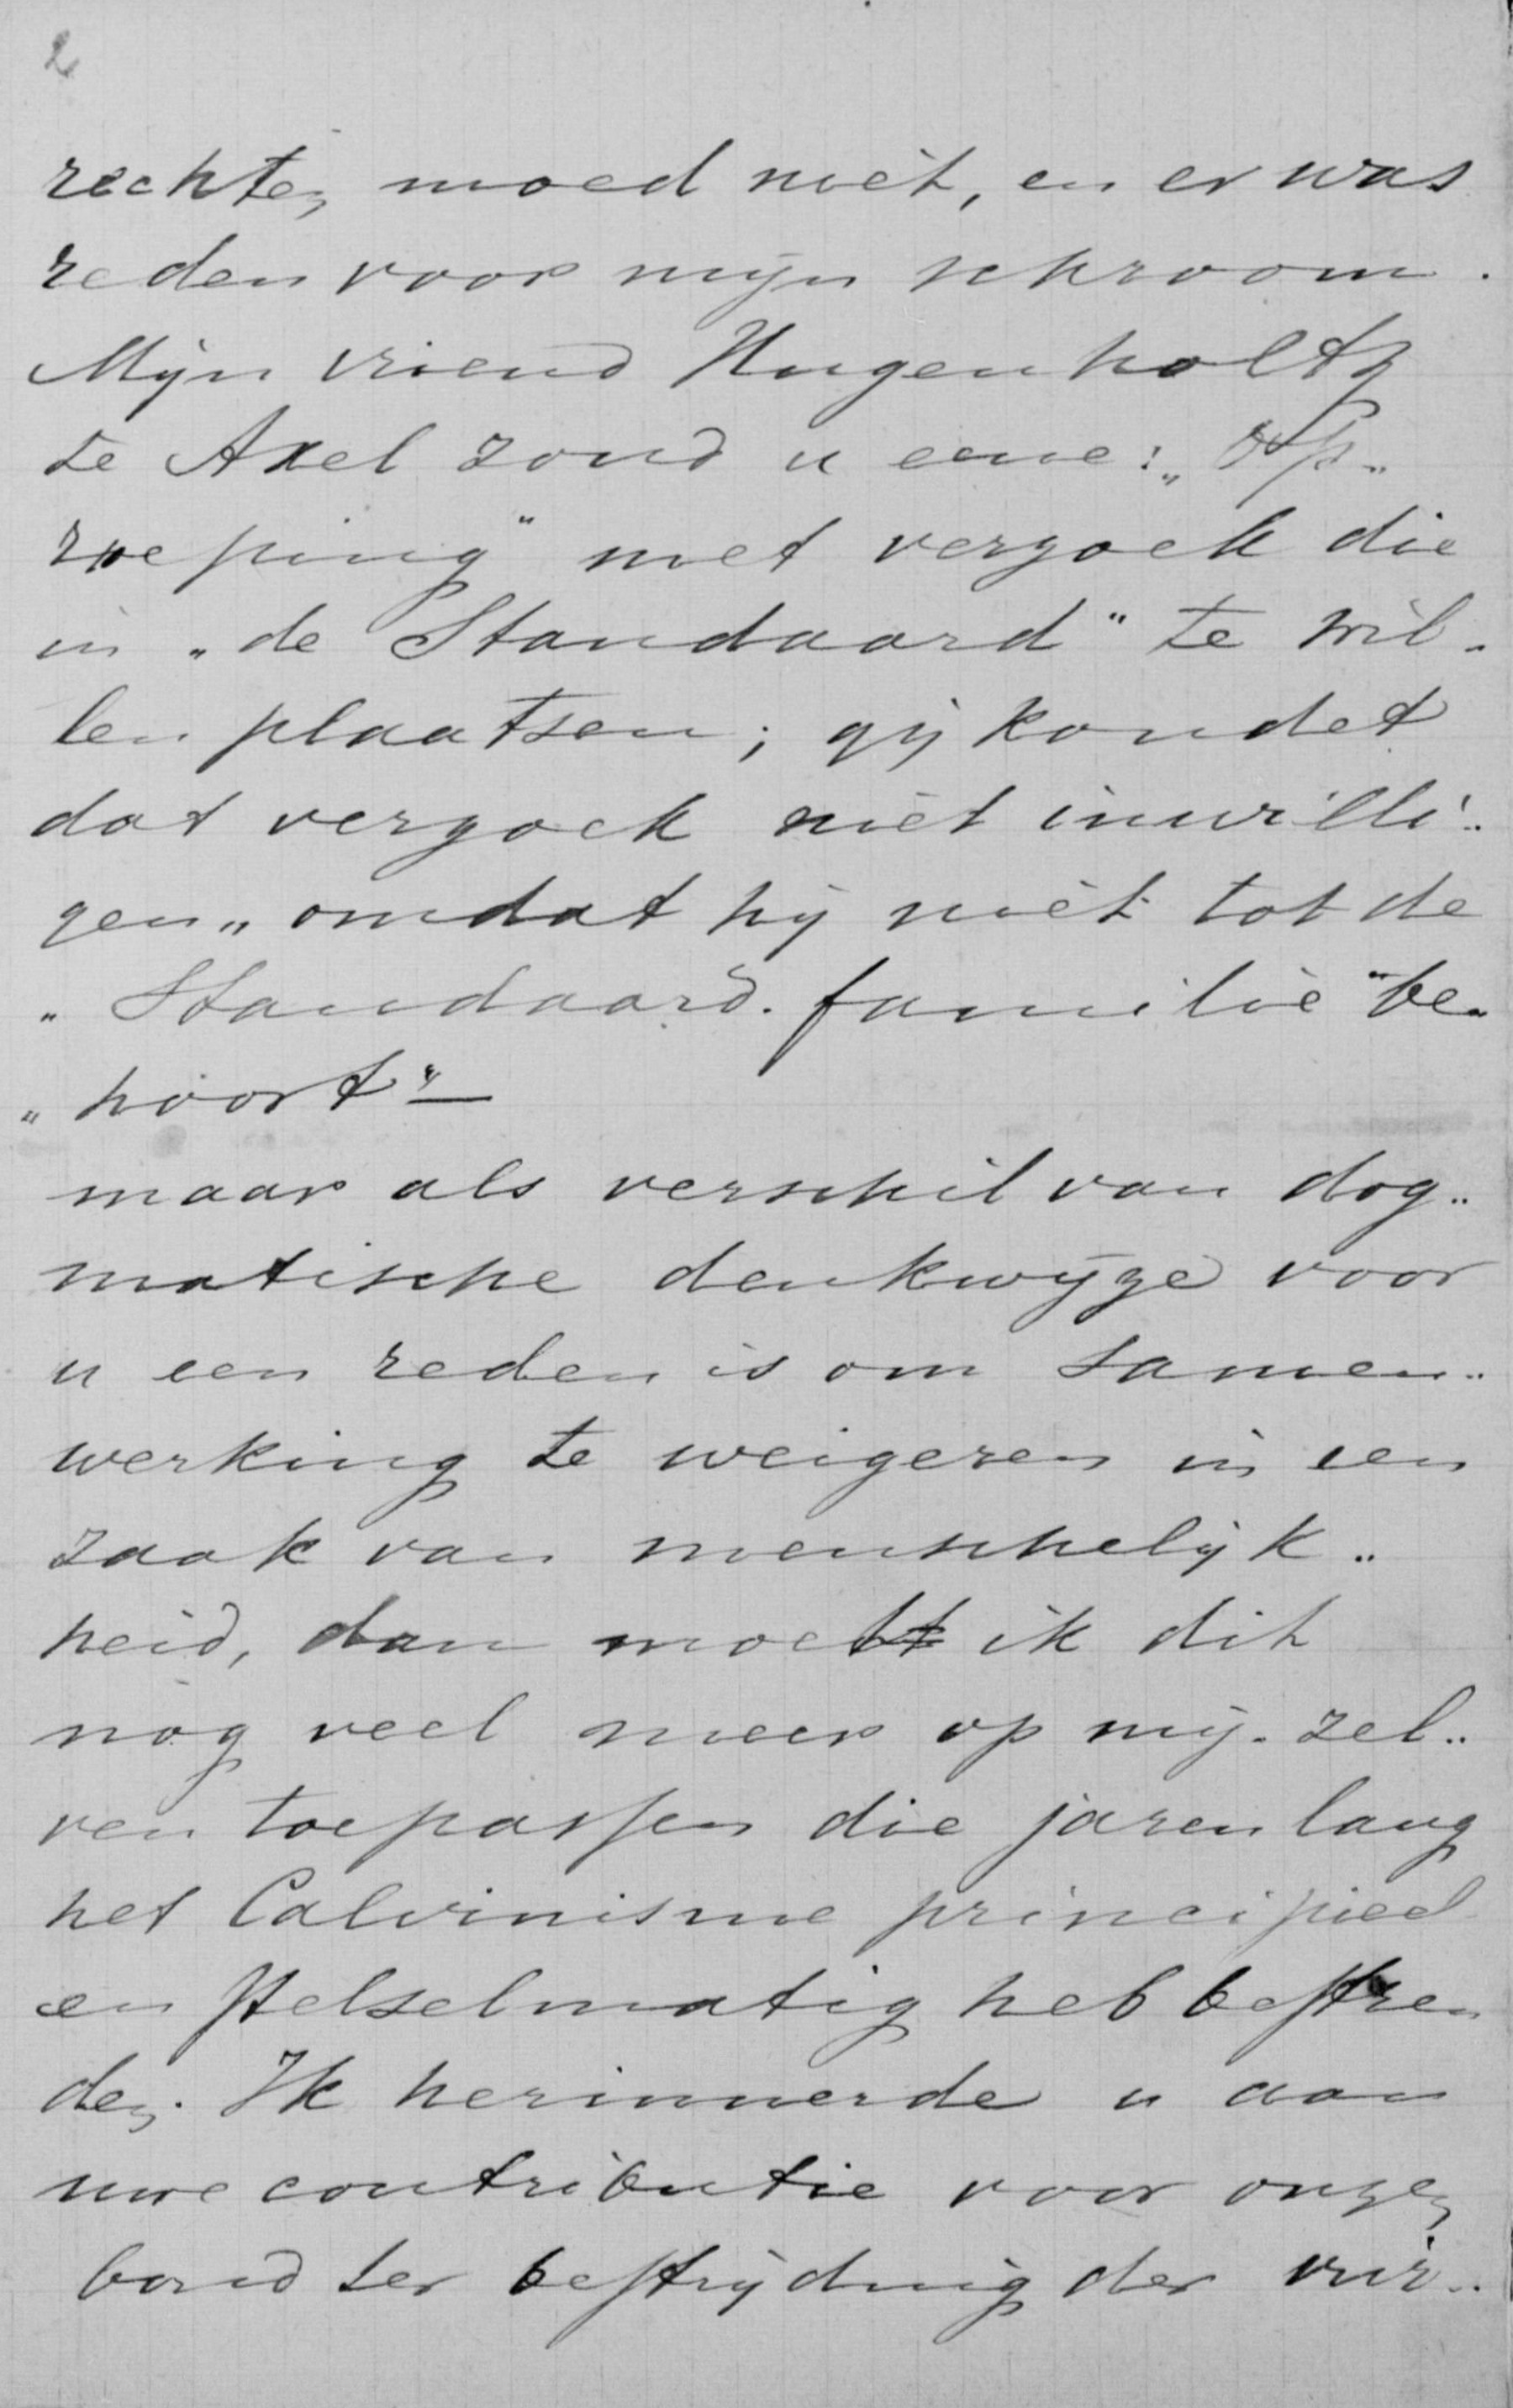 2
rechten moed niet, en er was
reden voor mijn schroom.
Mijn vriend Hugenholtz
te Axel zond u eene: „Op-
roeping" met verzoek die
in „de Standaard" te wil-
len plaatsen; gij kondet
dat verzoek niet inwilli-
gen „omdat hij niet tot de
„Standaard-familie" be-
„hoort" —
maar als verschil van dog-
matische denkwijze voor
u een reden is om samen-
werking te weigeren in een
zaak van menschelijk-
heid, dan moet ik dit
nog veel meer op mij-zel-
ven toepassen die jarenlang
het Calvinisme principieel
en stelselmatig heb bestre-
den. Ik herinnerde u aan
uwe contributie voor onzen
bond ter bestrijding der vivi-